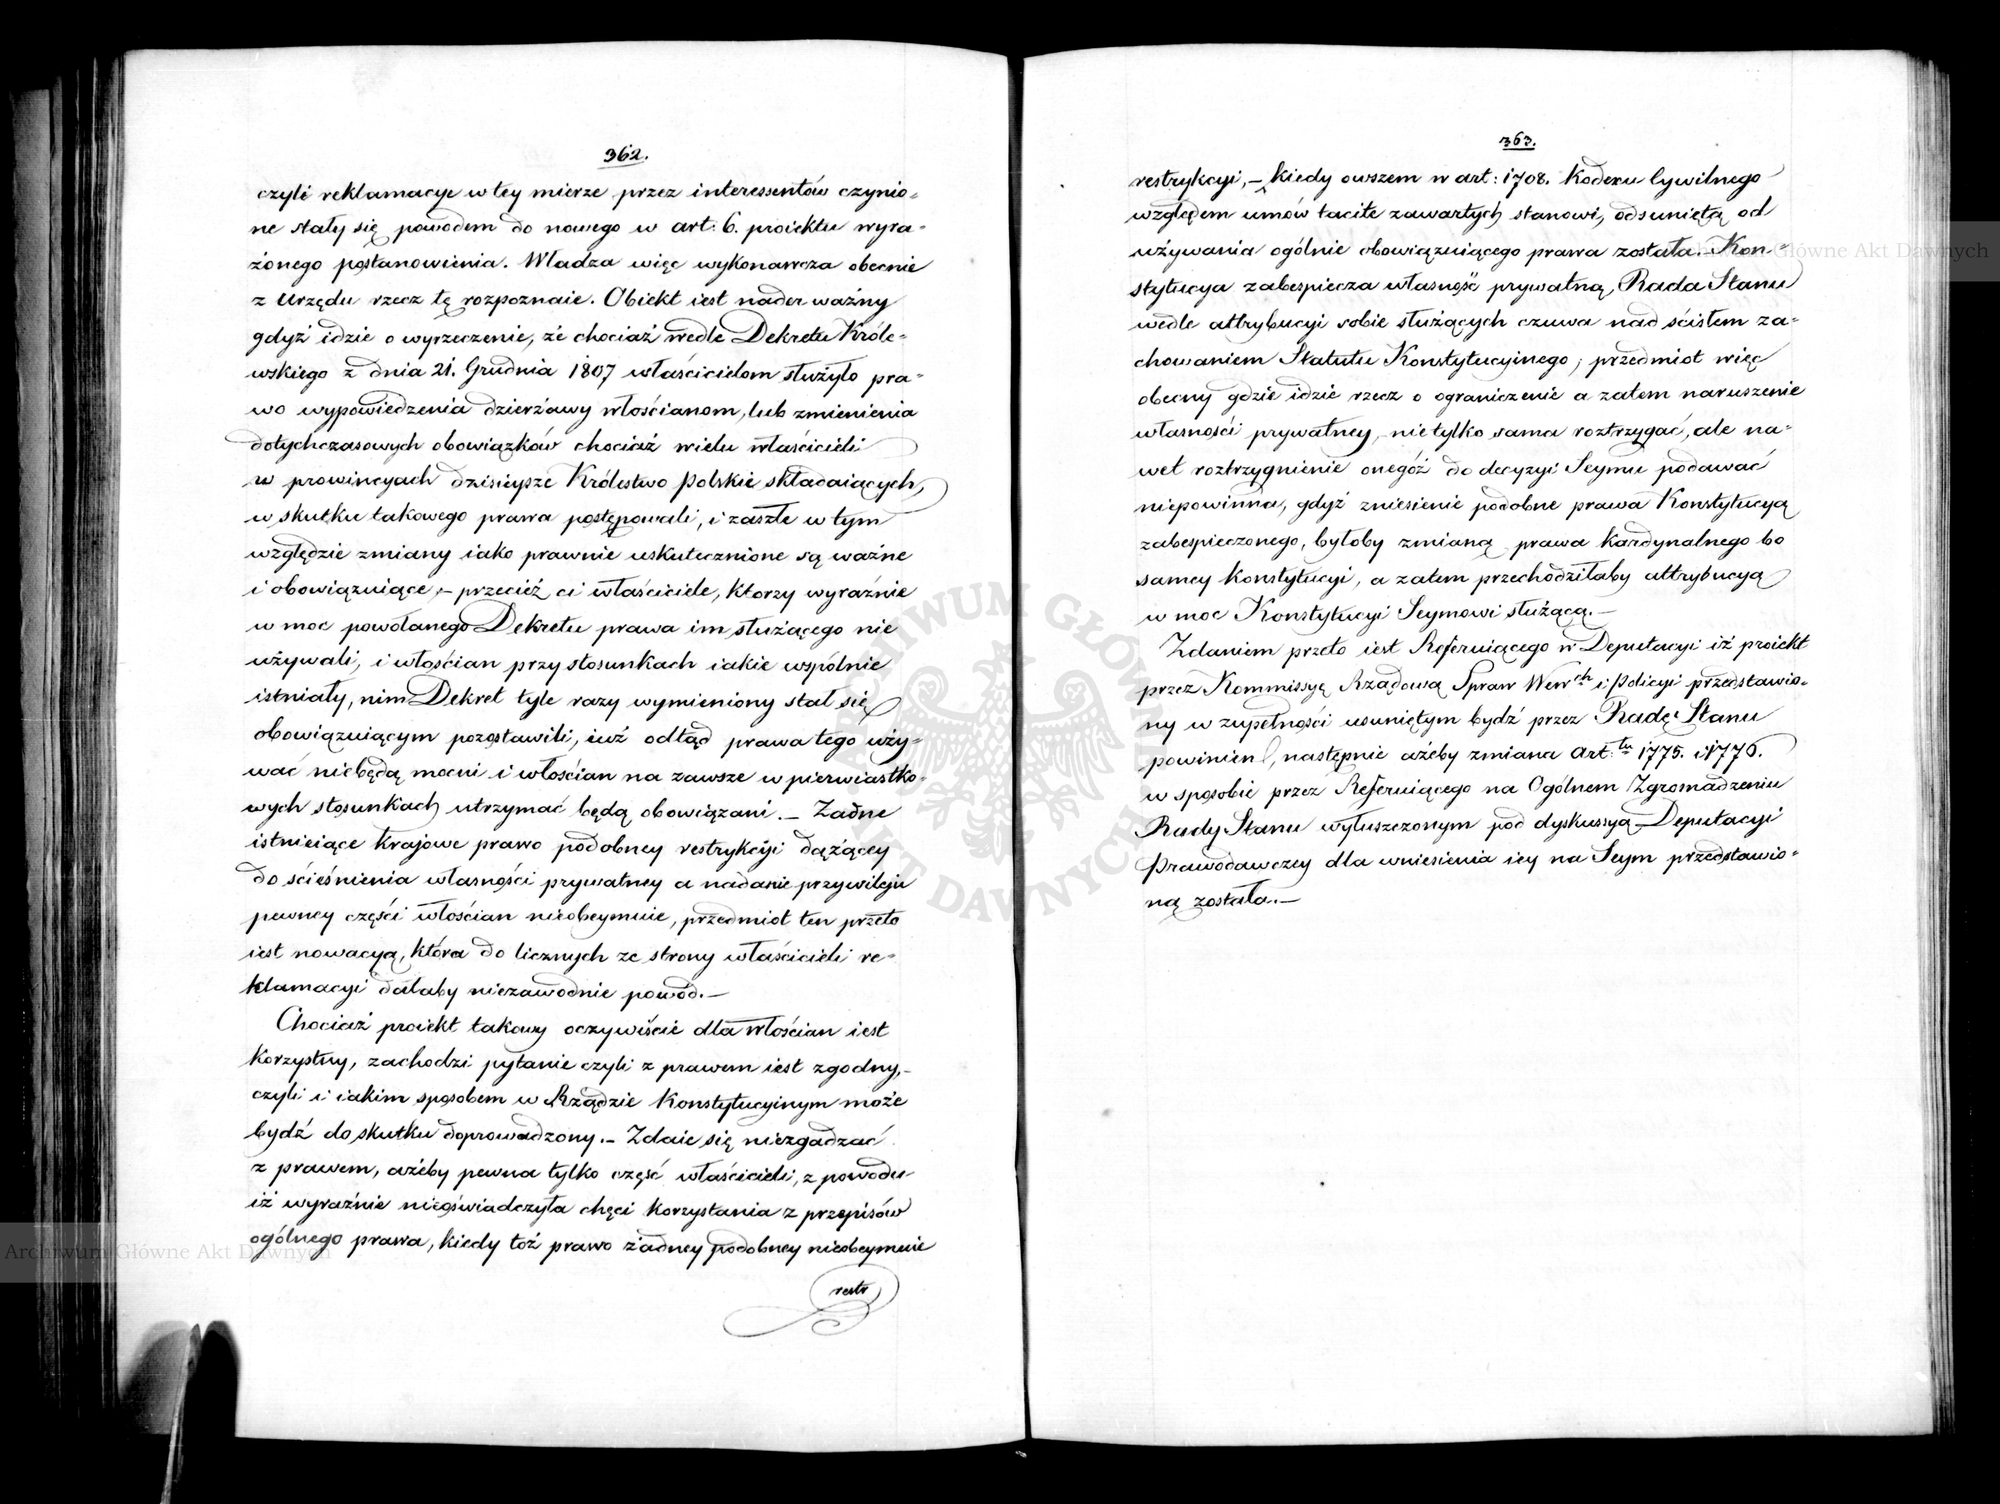 362.
czyli reklamacye w tey mierze przez interessentów czynio-
ne stały się powodem do nowego w art: 6. proiektu wyra-
żonego postanowienia. Władza więc wykonawcza obecnie
z Urzędu rzecz tę rozpoznaie. Obiekt iest nader ważny
gdyż idzie o wyrzeczenie, że chociaż wedle Dekretu Króle-
wskiego z dnia 21. Grudnia 1807 właścicielom służyło pra-
wo wypowiedzenia dzierżawy włościanom, lub zmienienia
dotychczasowych obowiązków chociaż wielu właścicieli
w prowincyach dzisieysze Królestwo Polskie składaiących,
w skutku takowego prawa postępowali, i zaszłe w tym
względzie zmiany iako prawnie uskutecznione są ważne
i obowiązuiące, – przecież ci właściciele, którzy wyraźnie
w moc powołanego Dekretu prawa im służącego nie
używali, i włościan przy stosunkach iakie wspólnie
istniały, nim Dekret tyle razy wymieniony stał się
obowiązuiącym pozostawili, iuż odtąd prawa tego uży-
wać niebędą mocni i włościan na zawsze w pierwiastko-
wych stosunkach utrzymać będą obowiązani. – Żadne
istnieiące kraiowe prawo podobney restrykcyi dążącey
do ścieśnienia własności prywatney a nadanie przywileju
pewney części włościan nieobeymuie, przedmiot ten przeto
iest nowacyą, która do licznych ze strony właścicieli re-
klamacyi dałaby niezawodnie powód. –
Chociaż proiekt takowy oczywiście dla włościan iest
korzystny, zachodzi pytanie czyli z prawem iest zgodny, –
czyli i iakim sposobem w Rządzie Konstytucyinym może
bydź do skutku doprowadzony. – Zdaie się niezgadzać
z prawem, ażeby pewna tylko część właścicieli, z powodu
iż wyraźnie nieoświadczyła chęci korzystania z przepisów
ogólnego prawa, kiedy toż prawo żadney podobney nieobeymuie
restr
363.
restrykcyi, – kiedy owszem w art: 1708. Kodexu Cywilnego
względem umów tacite zawartych stanowi, odsuniętą od
używania ogólnie obowiązuiącego prawa została. – Kon-
stytucya zabespiecza własność prywatną, Rada Stanu
wedle attrybucyi sobie służących czuwa nad ścisłem za-
chowaniem Statutu Konstytucyinego; przedmiot więc
obecny gdzie idzie rzecz o ograniczenie a zatem naruszenie
własności prywatney, nietylko sama roztrzygać, ale na-
wet roztrzygnienie onegóż do decyzyi Seymu podawać
niepowinna, gdyż zniesienie podobne prawa Konstytucyą
zabespieczonego, byłoby zmianą prawa kardynalnego bo
samey Konstytucyi, a zatem przechodziłaby attrybucyą
w moc Konstytucyi Seymowi służącą. –
Zdaniem przeto iest Referuiącego w Deputacyi iż proiekt
przez Kommissyą Rządową Spraw Wewch i Policyi przedstawio-
ny w zupełności usuniętym bydź przez Radę Stanu
powinien, następnie ażeby zmiana Art:tu 1775. i 1776.
w sposobie przez Referuiącego na Ogólnem Zgromadzeniu
Rady Stanu wyłuszczonym pod dyskussyą Deputacyi
Prawodawczey dla wniesienia iey na Seym przedstawio-
ną została. –
Archiwum Główne Akt Dawnych